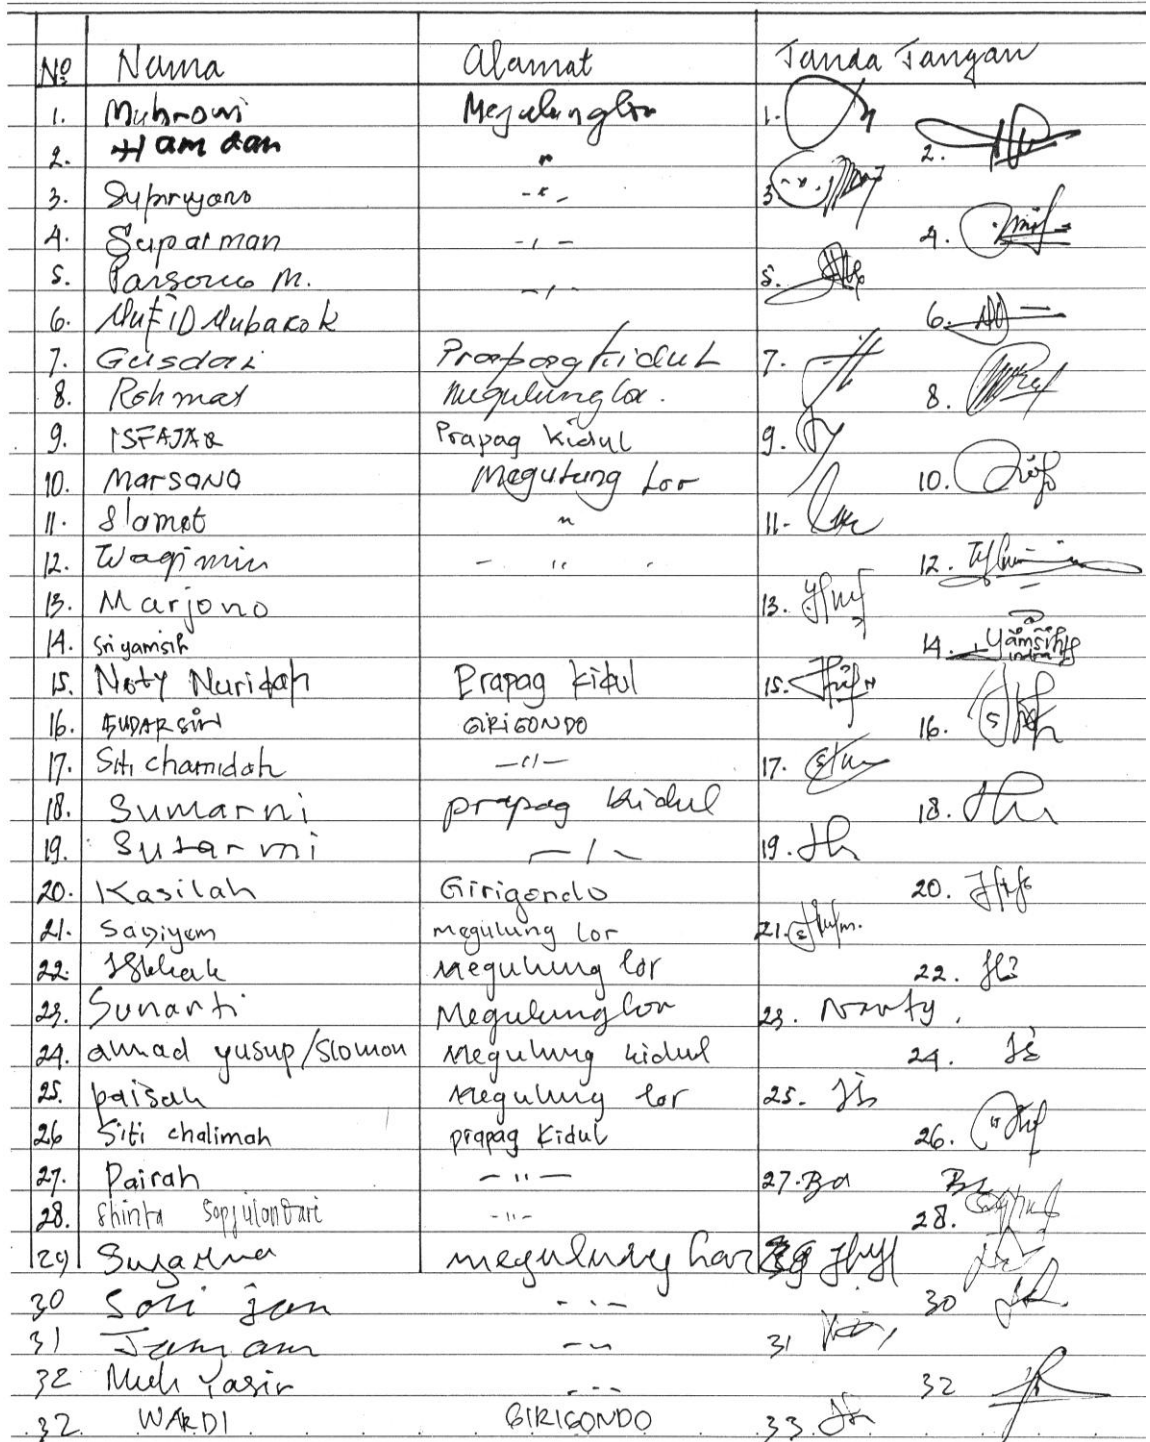 No Nama Alamat Tanda Tangan
1. Muhrowi Megulunglor 1.
2. Hamdan " 2.
3. Supriyono -"- 3.
4. Suparman -"- 4.
5. Parsono M. -"- 5.
6. MufiD Mubarok 6.
7. Gusdai Prapag kidul 7.
8. Rohmat Megulunglor. 8.
9. ISFAJAR Prapag Kidul 9.
10. Marsono Megulung Lor 10.
11. Slamet " 11-
12. Wagimin - " 12.
13. Marjono 13.
14. Sri yamsih 14. Yamsih
15. Noty Nuridah Prapag Kidul 15.
16. SUDARSIH GIRIGONDO 16.
17. Siti chamidah -"- 17.
18. Sumarni prapag kidul 18.
19. Sutarmi -"- 19.
20. Kasilah Girigondo 20.
21. Sagiyem megulung Lor 21.
22. Iskhak Megulung lor 22.
23. Sunarti Megulunglor 23. Narty.
24. ahmad yusup/Slomon Megulung kidul 24.
25. paisah Megulung lor 25.
26 Siti chalimah prapag Kidul 26.
27. Pairah -"- 27. Ba
28. Shinta -"- 28.
29 megulung 29
30 30
31 Jamam 31
32 Muh Yasir 32
32. WARDI GIRIGONDO 33.